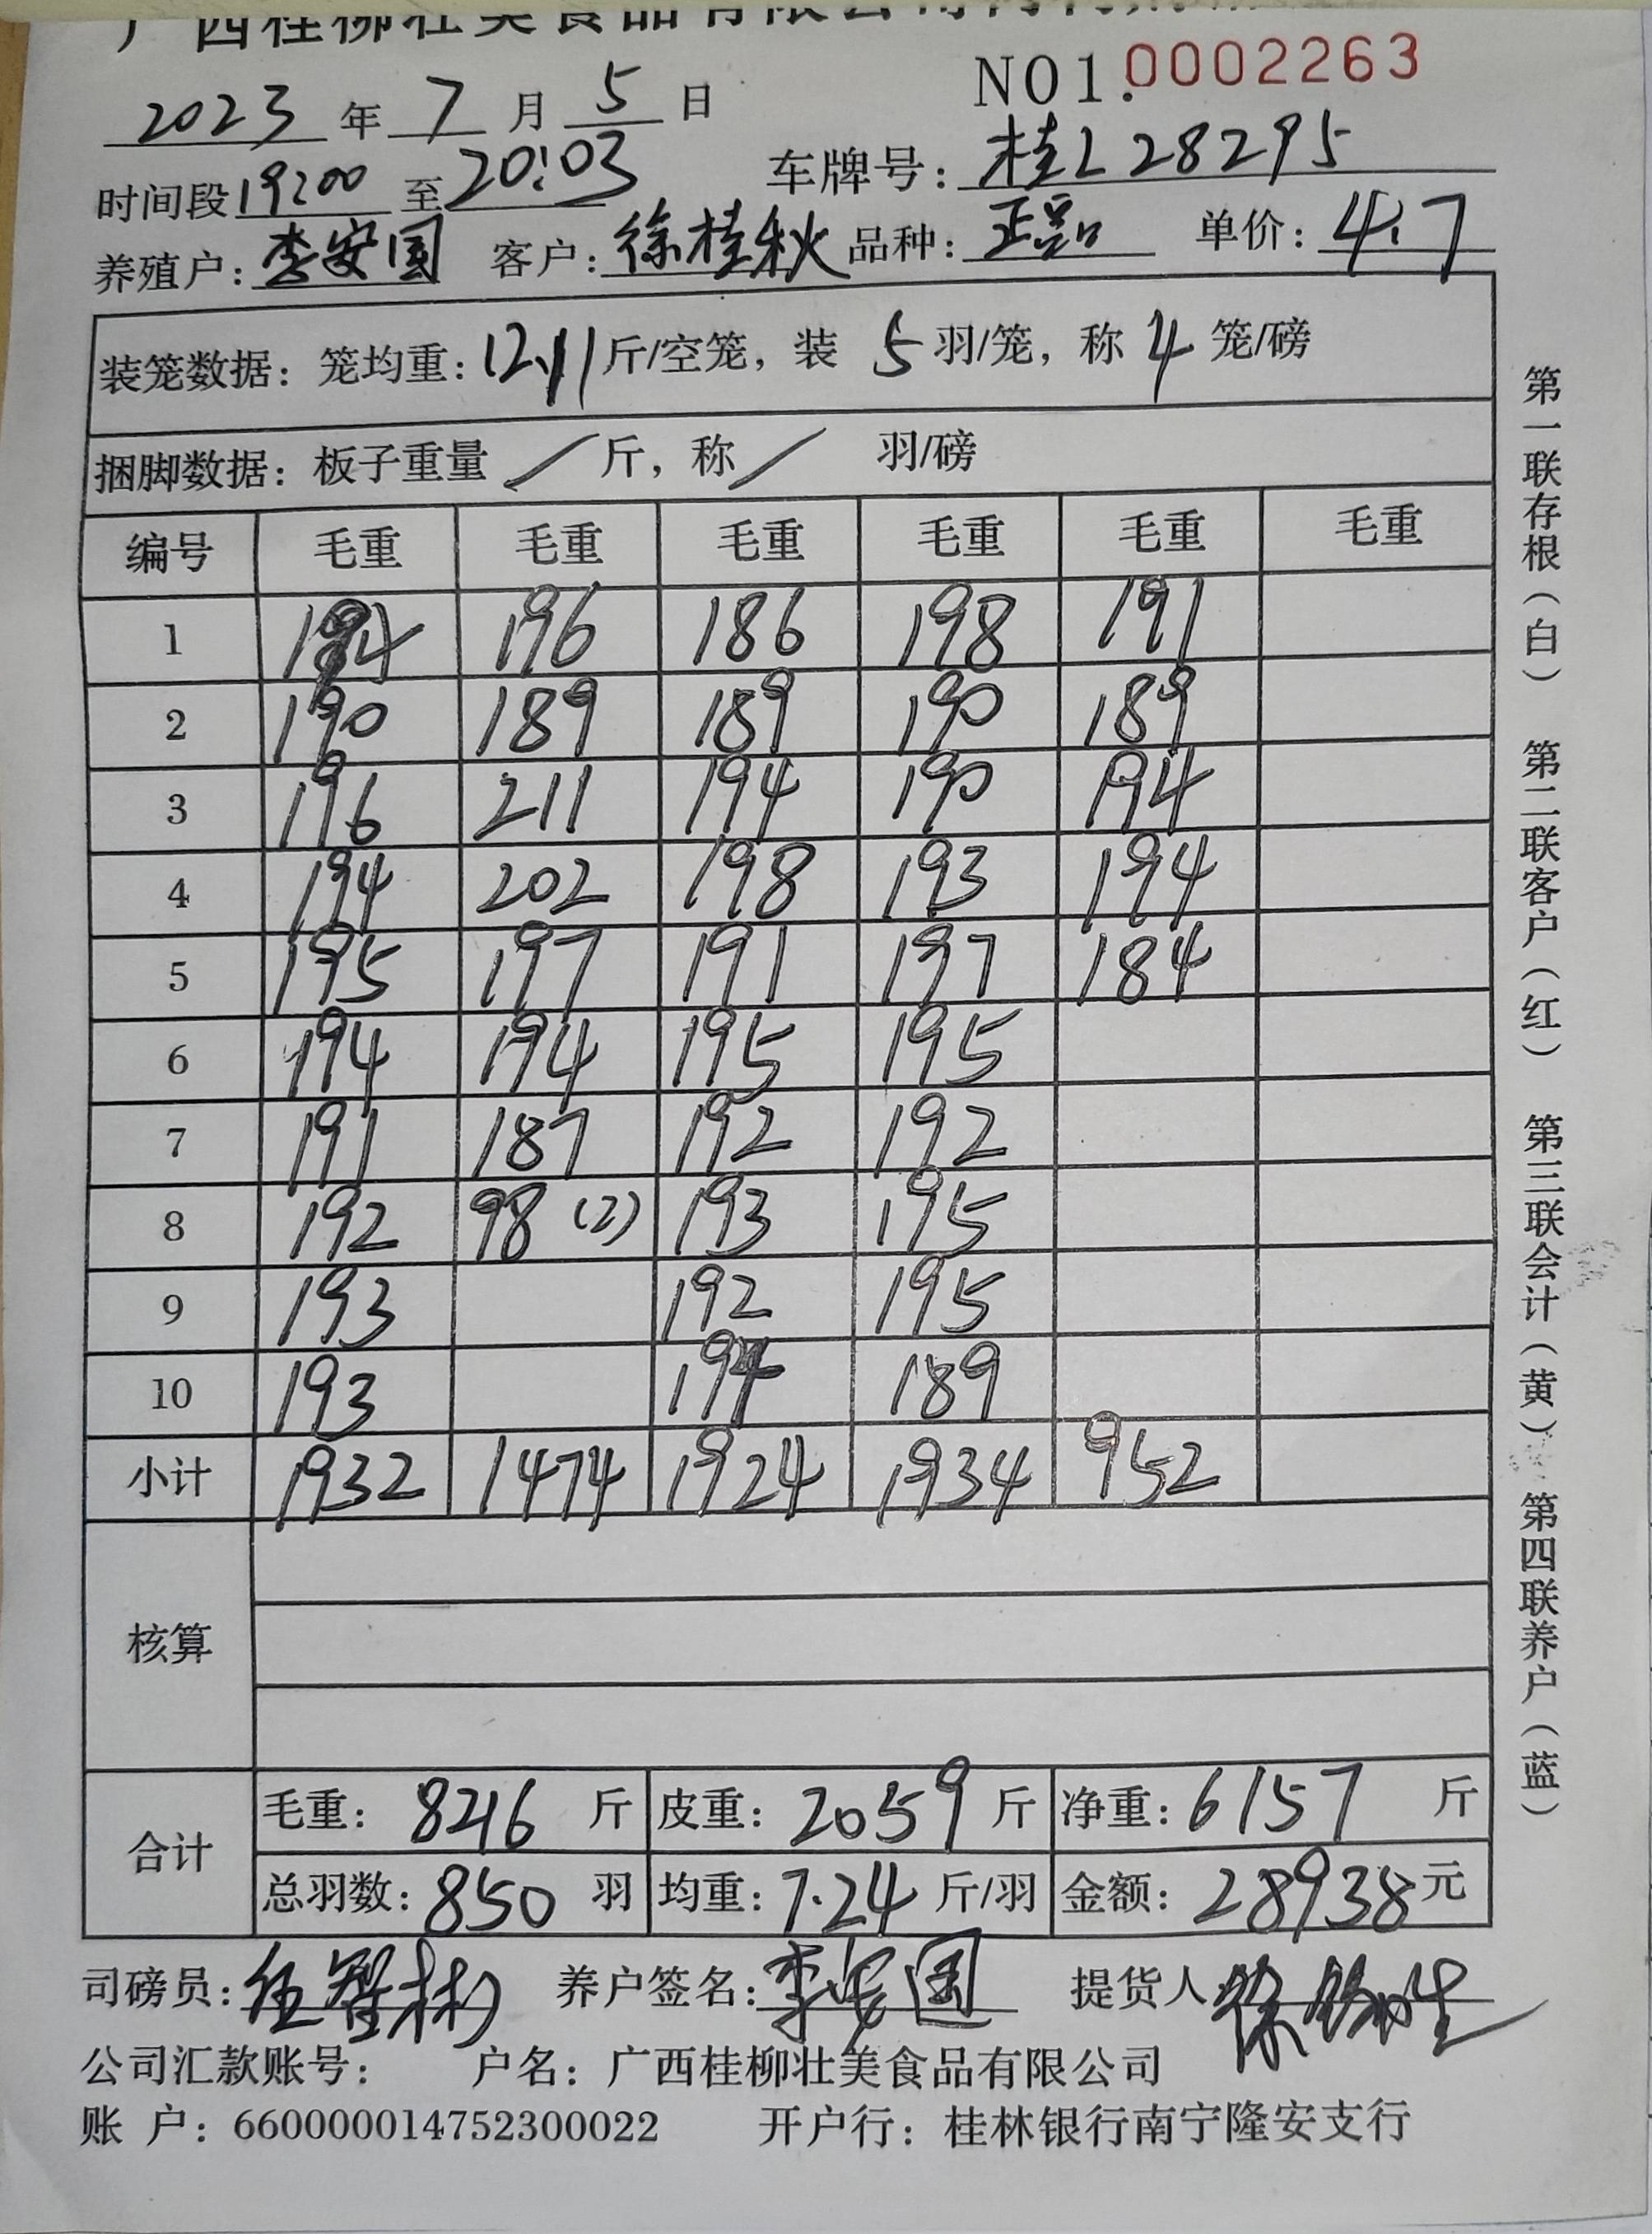 广西桂柳壮美食品有限公司
NO1.0002263
2023 年 7 月 5 日
时间段 19:00 至 20:03 车牌号: 桂L 28295
养殖户: 李安国 客户: 徐桂秋 品种: 正品 单价: 4.7
装笼数据: 笼均重: 12.11 斤/空笼, 装 5 羽/笼, 称 4 笼/磅
捆脚数据: 板子重量 / 斤, 称 / 羽/磅
编号 毛重 毛重 毛重 毛重 毛重 毛重
1 194 196 186 198 191
2 190 189 189 190 189
3 196 211 194 190 194
4 194 202 198 193 194
5 195 197 191 197 184
6 194 194 195 195
7 191 187 192 192
8 192 98 (2) 193 195
9 193 192 195
10 193 194 189
小计 1932 1474 1924 1934 952
核算
合计
毛重: 8216 斤 皮重: 2059 斤 净重: 6157 斤
总羽数: 850 羽 均重: 7.24 斤/羽 金额: 28938 元
司磅员: 伍智彬 养户签名: 李安国 提货人
公司汇款账号: 户名: 广西桂柳壮美食品有限公司
账 户: 660000014752300022 开户行: 桂林银行南宁隆安支行
第一联存根(白) 第二联客户(红) 第三联会计(黄) 第四联养户(蓝)